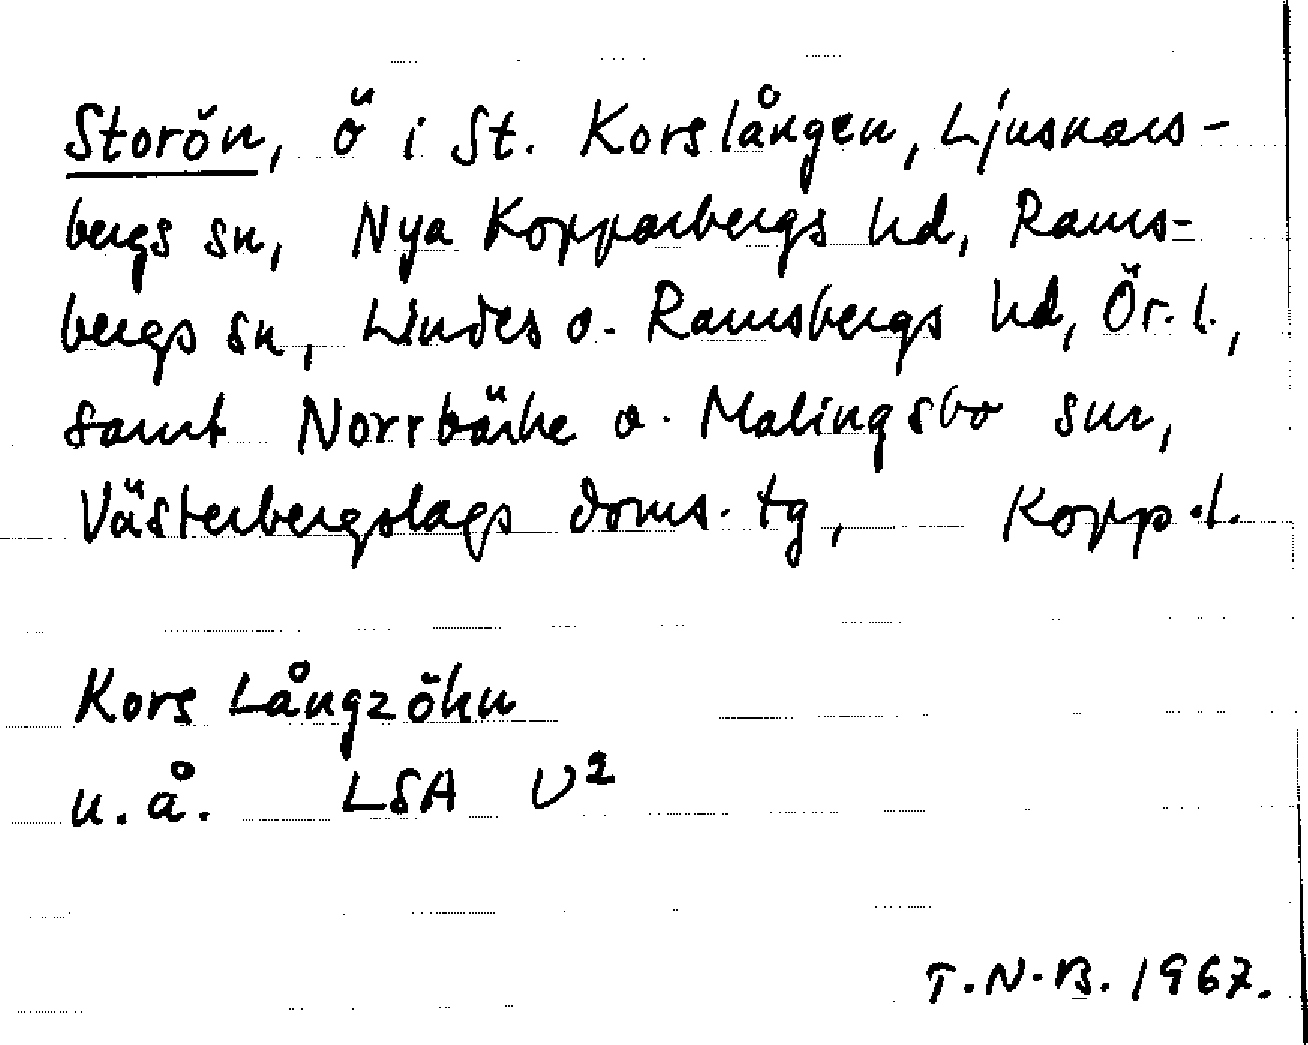 Storön, ö i St. Korslången, Ljusnars-
bergs sn, Nya Kopparbergs hd, Rams-
bergs sn, Lindes o. Ramsbergs hd, Ör. l.,
samt Norrbärke o. Malingsbo snr,
Västerbergslags doms. tg, Kopp. l.
Kors Långzöhn
u. å. LSA U²
T.N.B. 1967.